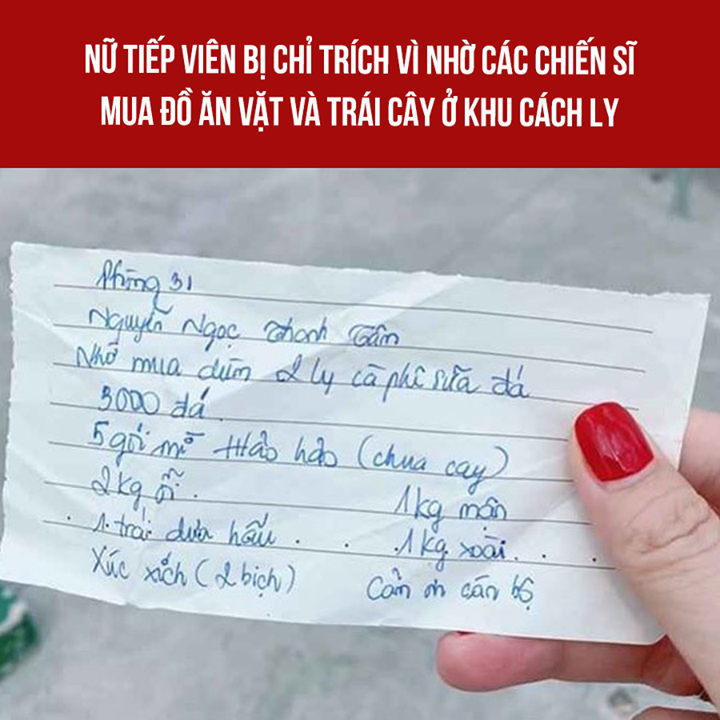 NỮ TIẾP VIÊN BỊ CHỈ TRÍCH VÌ NHỜ CÁC CHIẾN SĨ
MUA ĐỒ ĂN VẶT VÀ TRÁI CÂY Ở KHU CÁCH LY
Phòng 31
Nguyễn Ngọc Thanh Tâm
Nhờ mua dùm 2 ly cà phê sữa đá
3000 đá
5 gói mì Hảo hảo (chua cay)
2kg ổi. 1kg mận
1 trái dưa hấu . . 1kg xoài . . .
Xúc xích (2 bịch) Cảm ơn cán bộ